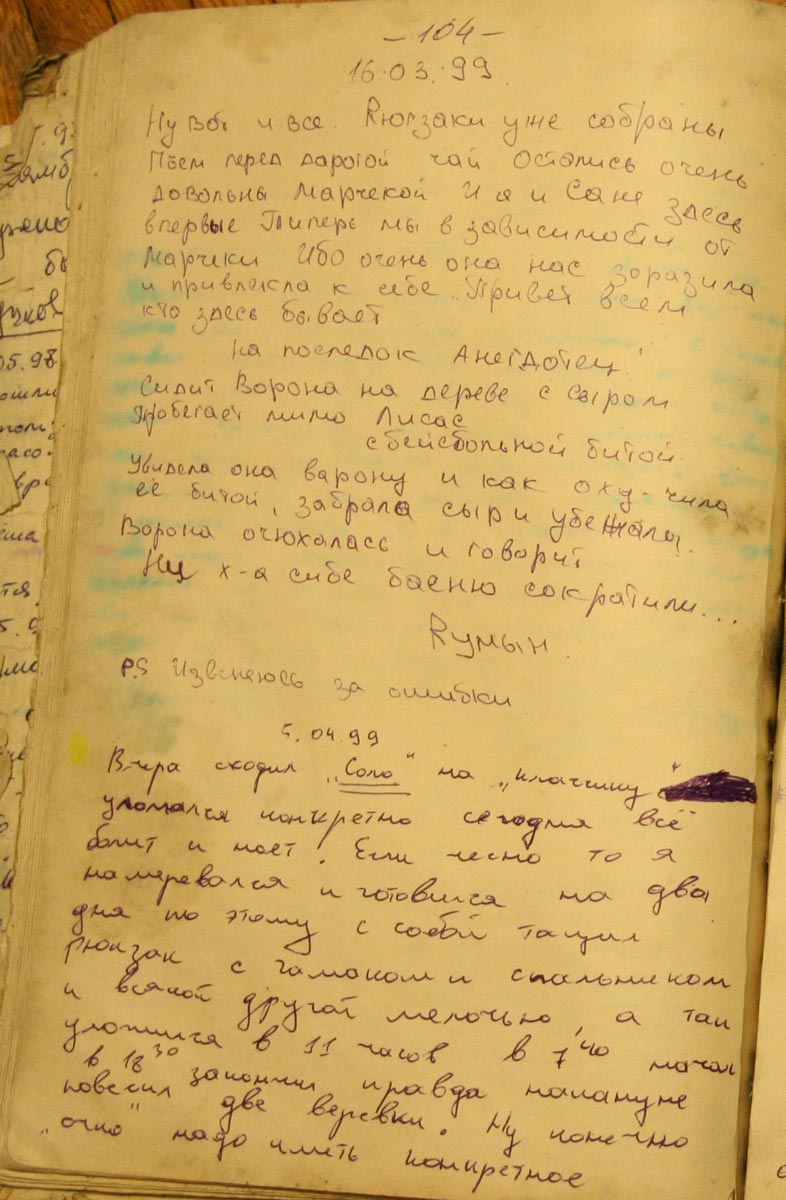 - 104 -
16.03.99
Ну вот и все. Rюгзаки уже собраны
Пьем перед дарогой чай Остались очень
довольны Марчекой И я и Саня здесь
впервые Типерь мы в зависимости от
Марчеки Ибо очень она нас заразила
и привлекла к себе. Привет всем
кто здесь бывает
На последок Анегдотец!
Сидит Ворона на дереве с сыром
Пробегает мимо Лиса с
с бейсбольной битой.
Увидела она варону и как оху-чила
её битой, забрала сыр и убежала.
Ворона очюхалась и говорит
Ни х-а сибе басню сократили...
Rумын.
P.S Извеняюсь за ошибки
5.04.99
Вчера сходил „Соло" на „классику"
уломался конкретно сегодня всё
болит и ноет! Если чесно то я
намеревался и готовился на два
дня по этому с собой тащил
рюкзак с гамаком и спальником
и всякой другой мелочью, а так
уложился в 11 часов в 7 40 начал
в 18 30 закончил правда накануне
повесил две веревки. Ну конечно
„очко" надо иметь конкретное